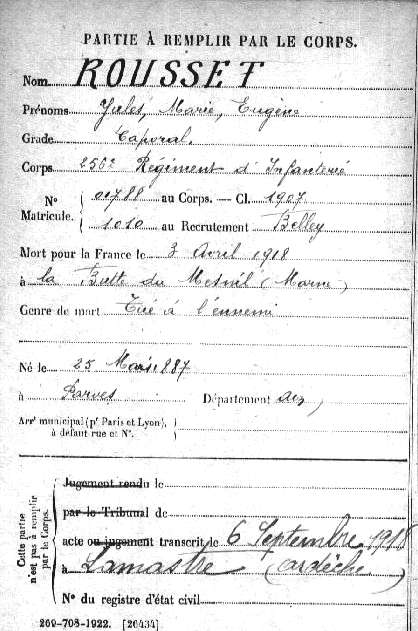 PARTIE À REMPLIR PAR LE CORPS.
Nom ROUSSET
Prénoms Jules, Marie, Eugène
Grade Caporal.
Corps 250e Régiment d'Infanterie
N° Matricule. 00788 au Corps. — Cl. 1907
1010 au Recrutement Belley
Mort pour la France le 3 Avril 1918
à la Butte du Mesnil (Marne)
Genre de mort Tué à l'ennemi
Né le 25 Mars 1887
à Parves Département Ain
Arrt municipal (pr Paris et Lyon), à défaut rue et N°.
Cette partie n'est pas à remplir par le Corps.
Jugement rendu le
par le Tribunal de
acte ou jugement transcrit le 6 Septembre 1918
à Lamastre (Ardèche)
N° du registre d'état civil
269-708-1922. [26434]